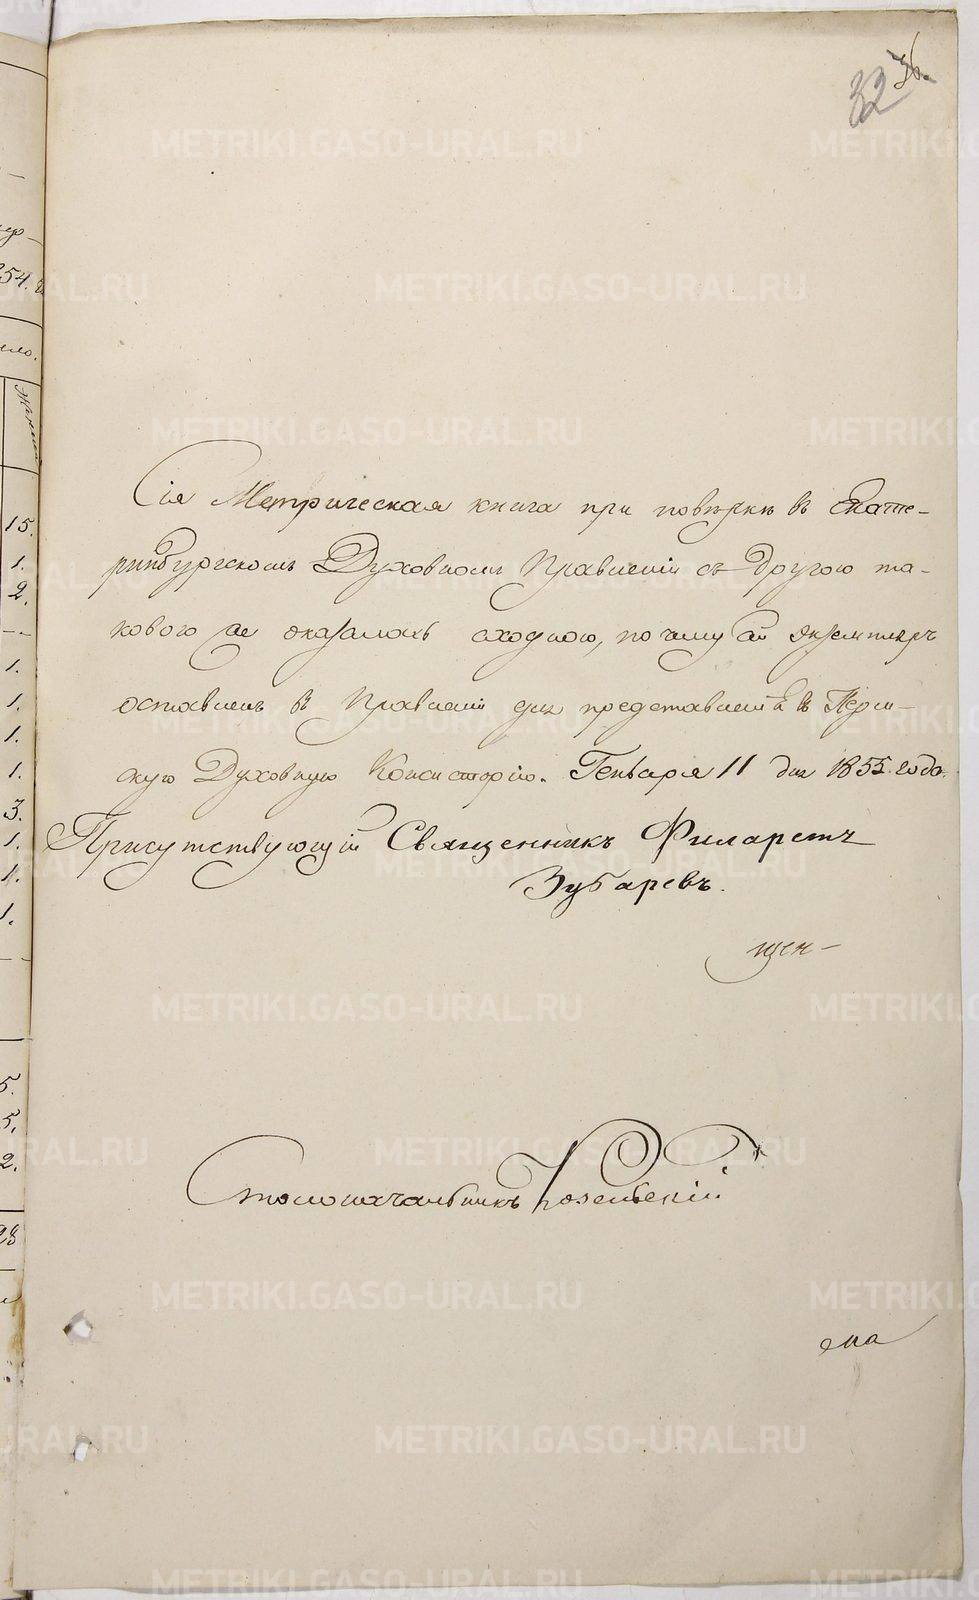 36.
32
Сія Метрическая книга при повѣркѣ въ Екате-
ринбургскомъ Духовномъ Правленіи съ другою та-
ковою же оказалась сходною, по чему сей экземпляръ
оставленъ въ Правленіи для представленія въ Перм-
скую Духовную Консисторію. Генваря 11 дня 1855 года.
Присутствующій Священникъ Филаретъ
Зубаревъ.
щен-
Столоначальникъ
ена
METRIKI.GASO-URAL.RU